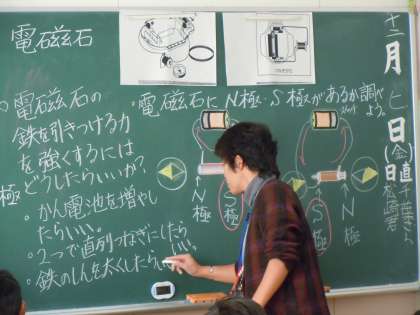 電磁石
電磁石の
鉄を引きつける力
を強くするには
どうしたらいいか?
・かん電池を増やし
たらいい。
・2つで直列つなぎにしたら
いい。
・鉄のしんを太くしたらいい。
・電磁石にN極・S極があるか調べ
よう。
N極
S極
S極
N極
極
十二月七日(金)
日直